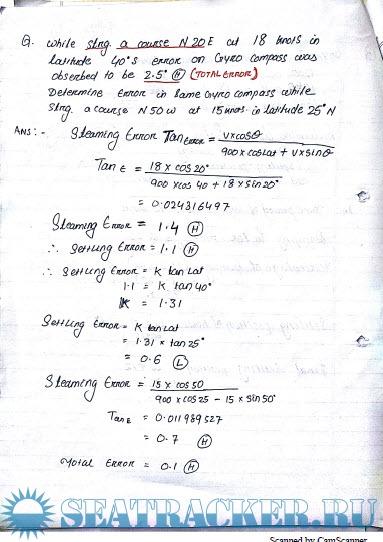 Q. while stng. a course N 20 E at 18 knots in
latitude 40°S error on Gyro compass was
observed to be 2.5° (H) (TOTAL ERROR)
Determine Error in same Gyro compass while
Stng. a course N 50 W at 15 knots in latitude 25° N
ANS :- Steaming Error Tan Error = V x cosθ
900 x cos Lat + V x sinθ
Tan E = 18 x cos 20°
900 x cos 40 + 18 x sin 20°
= 0.024316497
Steaming Error = 1.4 (H)
∴ Settling Error = 1.1 (H)
∴ Settling Error = K tan Lat
1.1 = K tan 40°
K = 1.31
Settling Error = K tan Lat
= 1.31 x tan 25°
= 0.6 (L)
Steaming Error = 15 x cos 50
900 x cos 25 - 15 x sin 50°
Tan E = 0.011989527
= 0.7 (H)
Total Error = 0.1 (H)
SEATRACKER.RU
Scanned by CamScanner